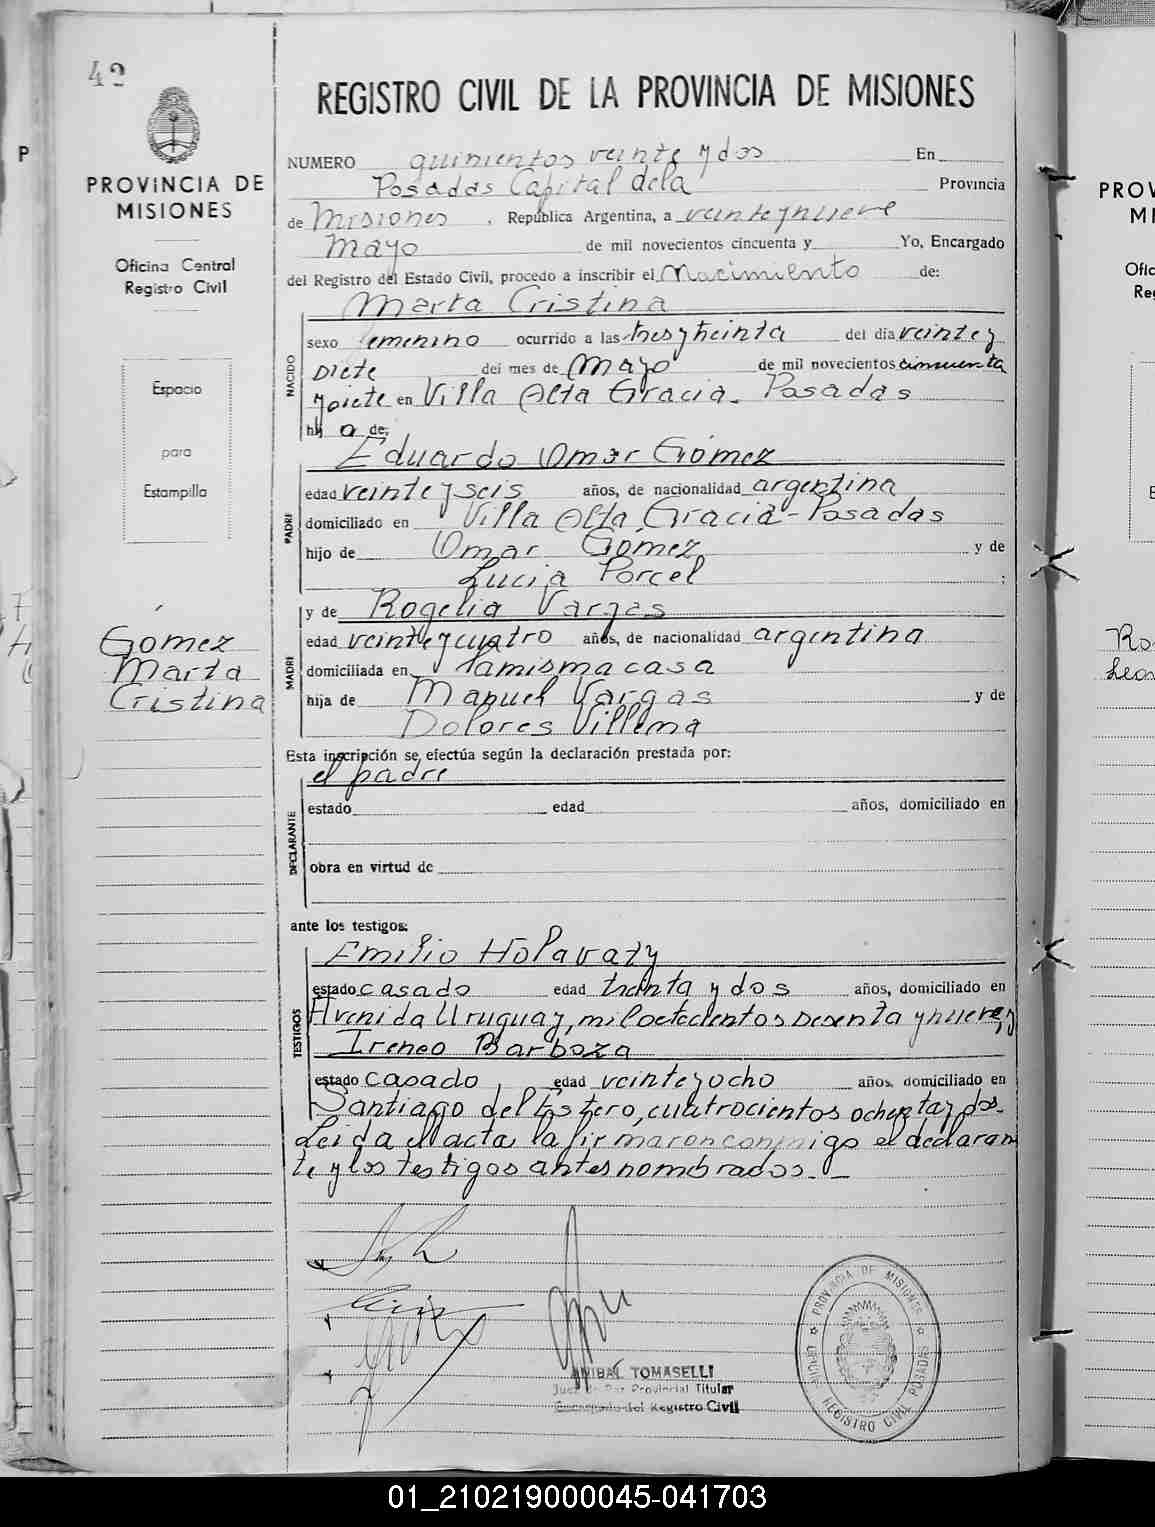 42
PROVINCIA DE
MISIONES
Oficina Central
Registro Civil
Espacio
para
Estampilla
Gomez
Marta
Cristina
REGISTRO CIVIL DE LA PROVINCIA DE MISIONES
NUMERO quinientos veinte y dos En
Posadas Capital dela Provincia
de Misiones, República Argentina, a veinteynueve
Mayo de mil novecientos cincuenta y Yo, Encargado
del Registro del Estado Civil, procedo a inscribir el Nacimiento de:
Marta Cristina
NACIDO
sexo femenino ocurrido a las tres y treinta del día veinte y
siete del mes de Mayo de mil novecientos cincuenta
y siete en Villa Alta Gracia - Posadas
hij a de:
Eduardo Omar Gómez
PADRE
edad veinte y seis años, de nacionalidad argentina
domiciliado en Villa Alta Gracia - Posadas
hijo de Omar Gómez y de
Lucia Porcel ;
y de Rogelia Vargas
MADRE
edad veinte y cuatro años, de nacionalidad argentina
domiciliada en la misma casa
hija de Manuel Vargas y de
Dolores Villema
Esta inscripción se efectúa según la declaración prestada por:
el padre
DECLARANTE
estado edad años, domiciliado en
obra en virtud de
ante los testigos:
Emilio Holavaty
TESTIGOS
estado casado edad treinta y dos años, domiciliado en
Avenida Uruguay, milochocientos sesenta y nueve, y
Ireneo Barboza
estado casado, edad veinte y ocho años, domiciliado en
Santiago del Estero, cuatrocientos ochenta y dos.
Leida el acta, la firmaron conmigo el declaran
te y los testigos antes nombrados. -
ANIBAL TOMASELLI
Juez de Paz Provincial Titular
Encargado del Registro Civil
PROVINCIA DE MISIONES
REGISTRO CIVIL POSADAS
P
PROV
MI
Ofic
Reg
E
Ro
Leo
01_210219000045-041703